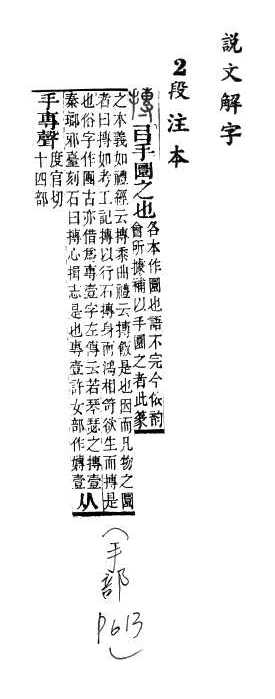 説文解字
2段注本
摶 㠯手圜之也 各本作圜也語不完今依韵
會所據補以手圜之者此篆
之本義如禮經云摶黍曲禮云摶飯是也因而凡物之圜
者曰摶如考工記摶以行石摶身而鴻相笴欲生而摶是
也俗字作團古亦借爲專壹字左傳云若琴瑟之摶壹
秦琅邪臺刻石曰摶心揖志是也專壹許女部作嫥壹 从
手專聲 度官切
十四部
(手部 P613)